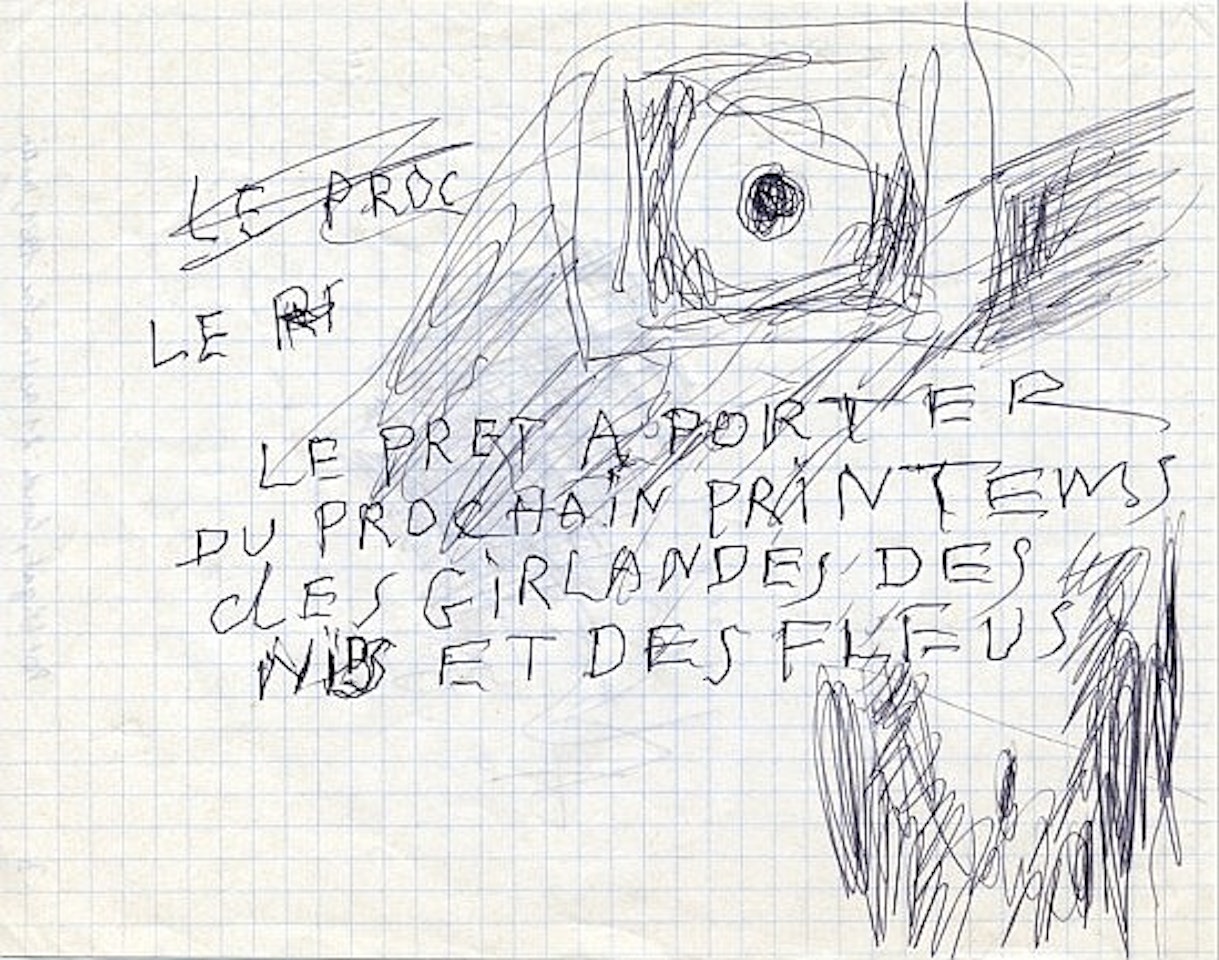 LE PROC
LE
LE PRET A PORTER
DU PROCHAIN PRINTEMS
dES GiRLANDES DES
ET DES FLEUS